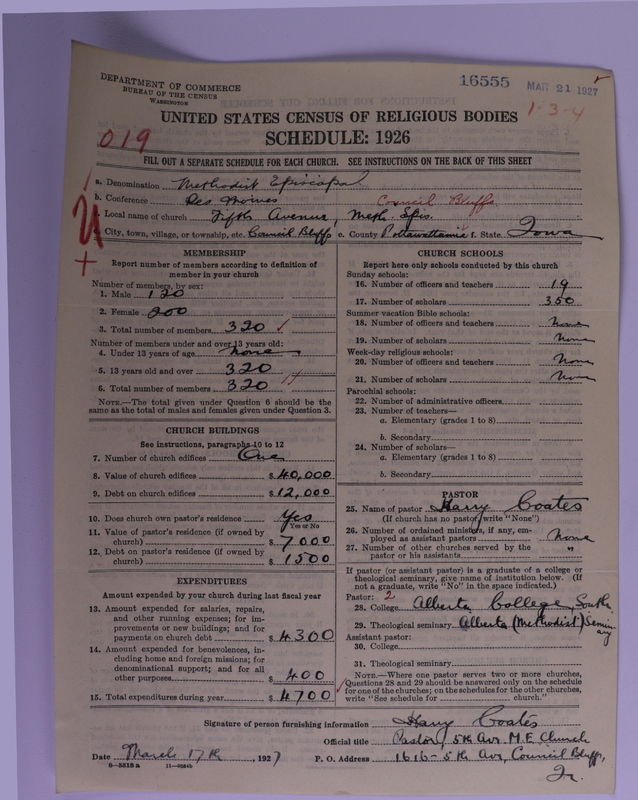 DEPARTMENT OF COMMERCE
BUREAU OF THE CENSUS
WASHINGTON
16555 MAR 21 1927
1-3-4
UNITED STATES CENSUS OF RELIGIOUS BODIES
SCHEDULE: 1926
019
FILL OUT A SEPARATE SCHEDULE FOR EACH CHURCH. SEE INSTRUCTIONS ON THE BACK OF THIS SHEET
a. Denomination Methodist Episcopal
b. Conference Des Moines Council Bluffs
c. Local name of church Fifth Avenue Meth. Epis.
d. City, town, village, or township, etc. Council Bluffs e. County Pottawattamie f. State Iowa
MEMBERSHIP
Report number of members according to definition of
member in your church
Number of members, by sex:
1. Male 120
2. Female 200
3. Total number of members 320
Number of members under and over 13 years old:
4. Under 13 years of age none
5. 13 years old and over 320
6. Total number of members 320
NOTE.—The total given under Question 6 should be the
same as the total of males and females given under Question 3.
CHURCH BUILDINGS
See instructions, paragraphs 10 to 12
7. Number of church edifices One
8. Value of church edifices $ 40,000
9. Debt on church edifices $ 12,000
10. Does church own pastor's residence? Yes
Yes or No
11. Value of pastor's residence (if owned by
church) $ 7000
12. Debt on pastor's residence (if owned by
church) $ 1500
EXPENDITURES
Amount expended by your church during last fiscal year
13. Amount expended for salaries, repairs,
and other running expenses; for im-
provements or new buildings; and for
payments on church debt $ 4300
14. Amount expended for benevolences, in-
cluding home and foreign missions; for
denominational support; and for all
other purposes $ 400
15. Total expenditures during year $ 4700
CHURCH SCHOOLS
Report here only schools conducted by this church
Sunday schools:
16. Number of officers and teachers 19
17. Number of scholars 350
Summer vacation Bible schools:
18. Number of officers and teachers None
19. Number of scholars None
Week-day religious schools:
20. Number of officers and teachers None
21. Number of scholars None
Parochial schools:
22. Number of administrative officers
23. Number of teachers—
a. Elementary (grades 1 to 8)
b. Secondary
24. Number of scholars—
a. Elementary (grades 1 to 8)
b. Secondary
PASTOR
25. Name of pastor Harry Coates
(If church has no pastor, write "None")
26. Number of ordained ministers, if any, em-
ployed as assistant pastors None
27. Number of other churches served by the
pastor or his assistants "
If pastor (or assistant pastor) is a graduate of a college or
theological seminary, give name of institution below. (If
not a graduate, write "No" in the space indicated.)
Pastor: 2
28. College Alberta College, South
29. Theological seminary Alberta (Methodist) Semin
ary
Assistant pastor:
30. College
31. Theological seminary
NOTE.—Where one pastor serves two or more churches,
Questions 28 and 29 should be answered only on the schedule
for one of the churches; on the schedules for the other churches,
write "See schedule for church."
Signature of person furnishing information Harry Coates
Official title Pastor, 5th Ave M.E. Church
Date March 17th, 1927 P. O. Address 1616-5th Ave, Council Bluffs,
Ia.
8-5518a 11-9604b